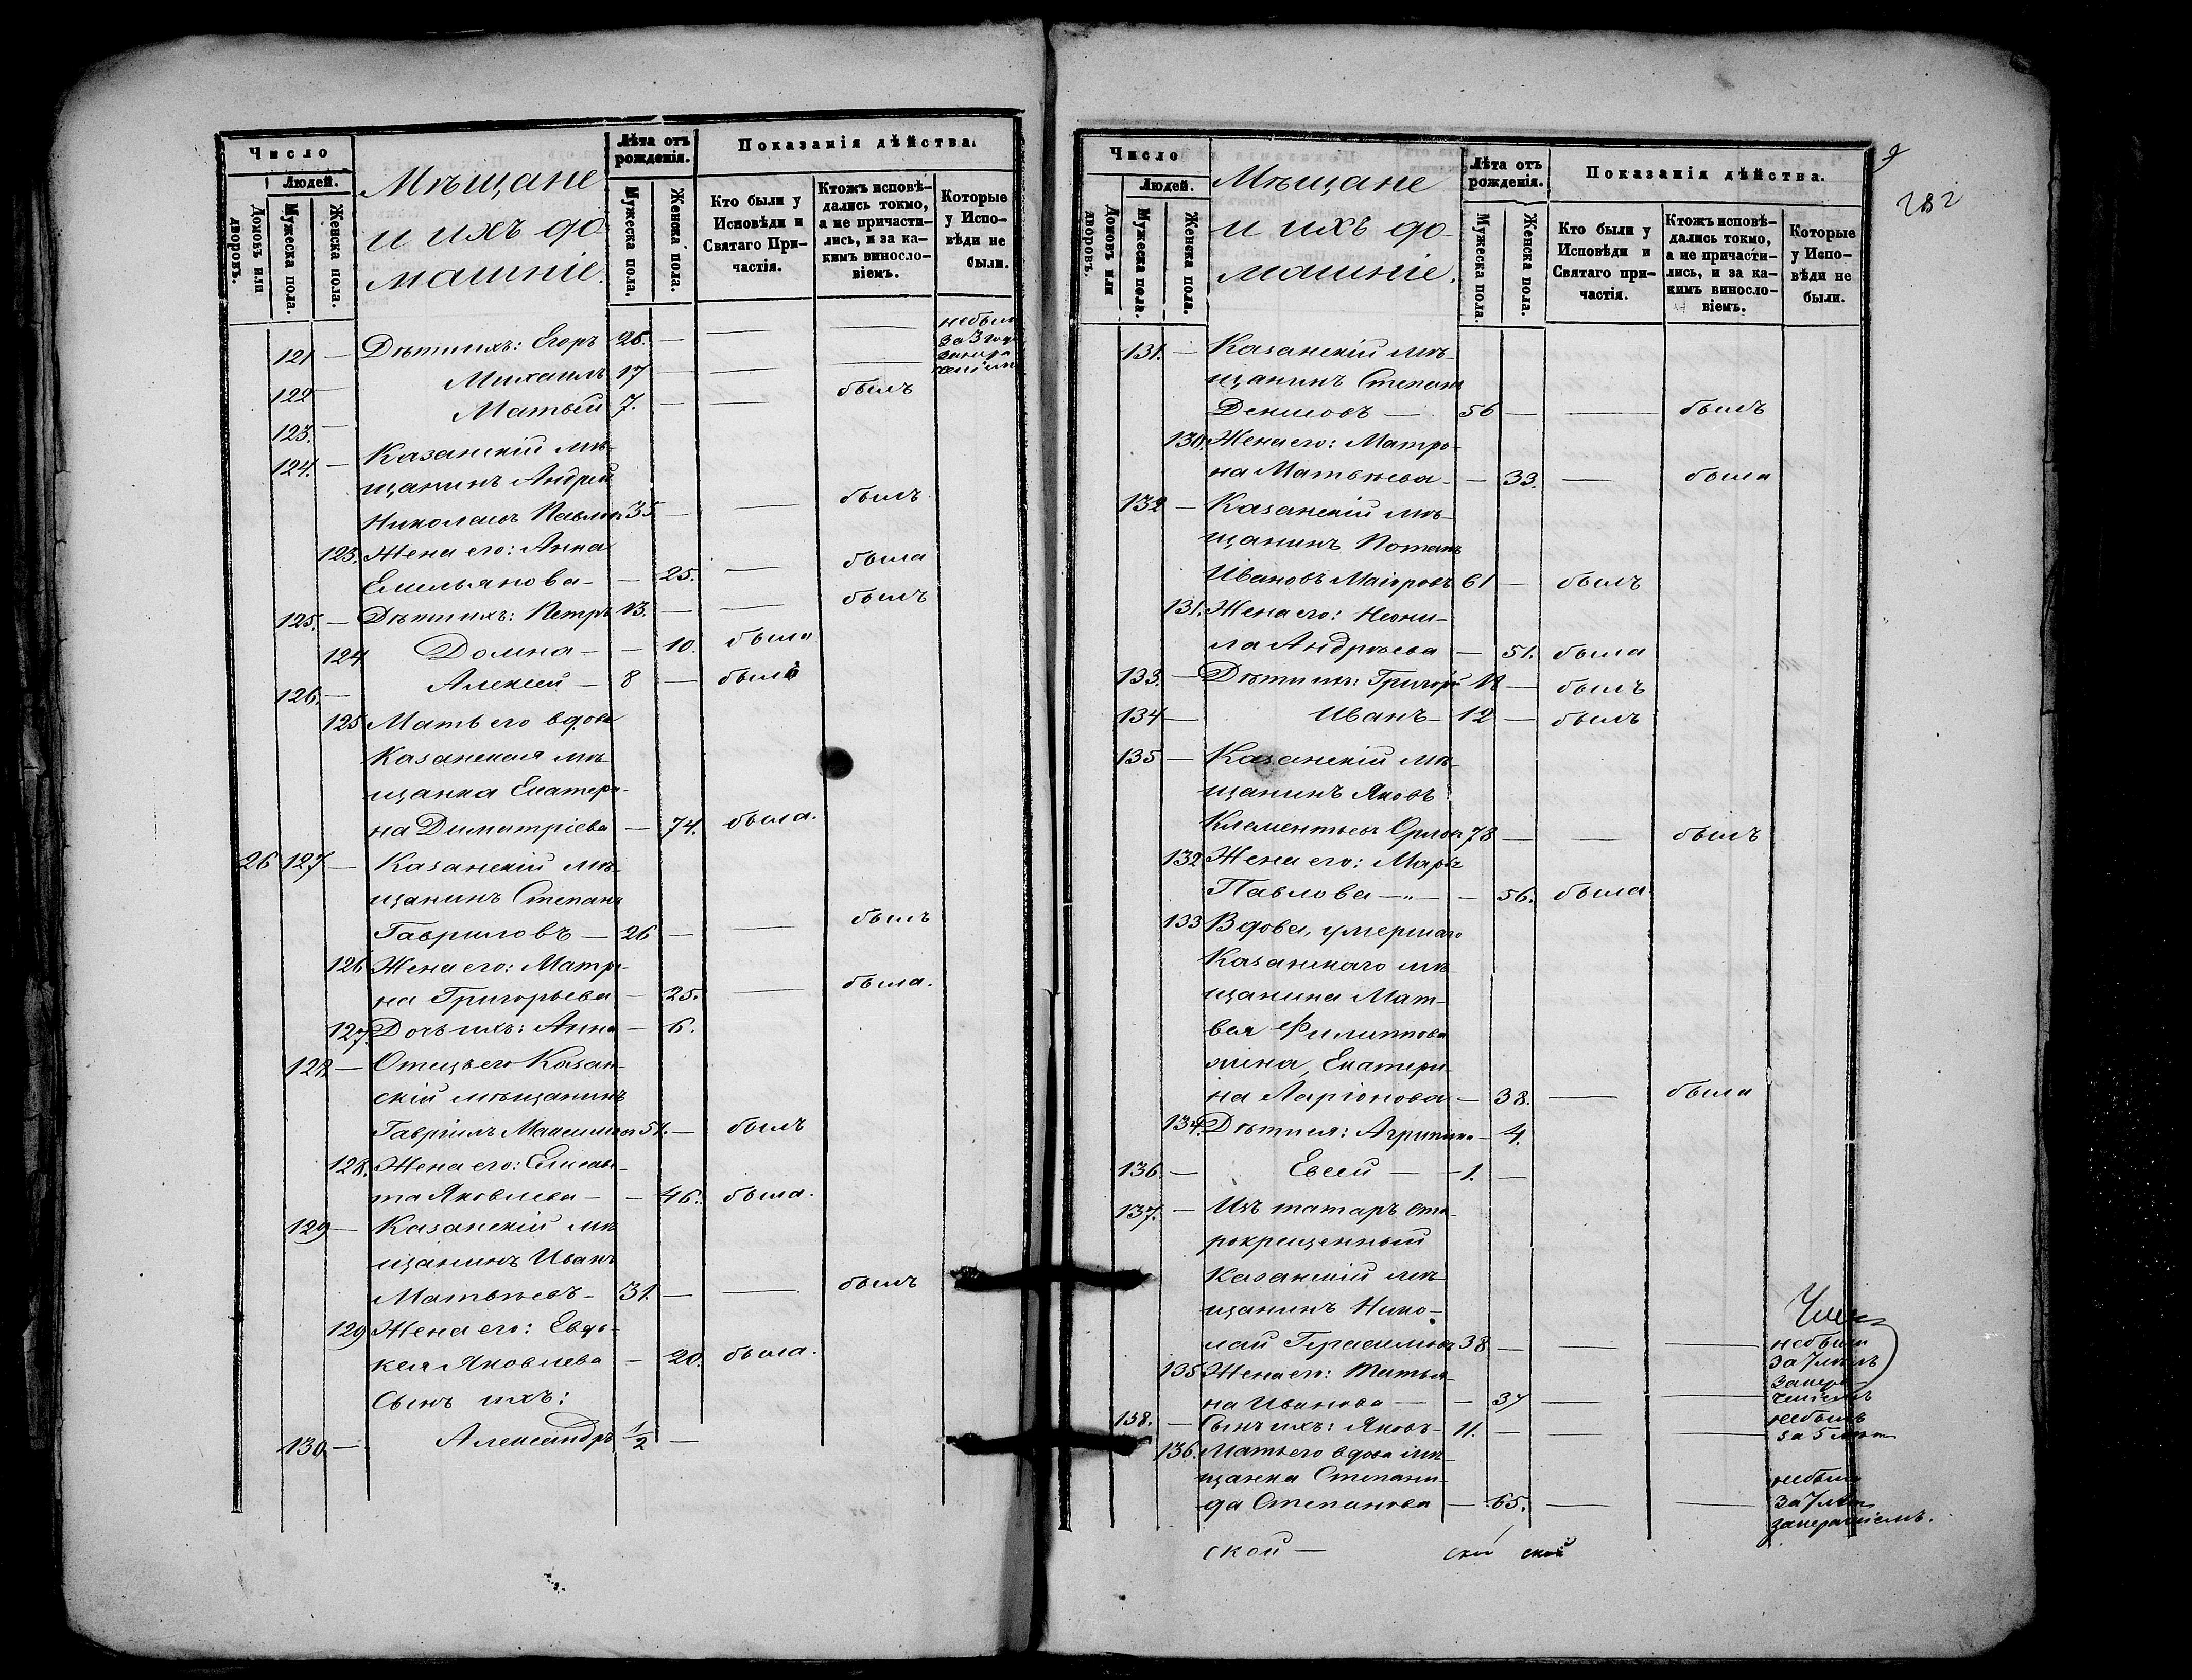 Число
Людей.
Домовъ или дворовъ.
Мужеска пола.
Женска пола.
Мѣщане
и ихъ до
машніе.
Лѣта отъ рожденія.
Мужеска пола.
Женска пола.
Показанія дѣйства.
Кто были у Исповѣди и Святаго Причастія.
Ктожъ исповѣ-
дались токмо,
а не причасти-
лись, и за ка-
кимъ виносло-
віемъ.
Которые
у Испо-
вѣди не
были.
121 — Дѣти ихъ: Егоръ 26. — — — небыли
за 3 год
122 — Михаилъ 17 — — —
123. — Матвѣй 7. — — былъ
124. — Казанскій мѣ-
щанинъ Андрей
Николаевъ Павловъ 35 — — былъ
123. Жена его: Анна
Емельянова — — 25. — была
125. — Дѣти ихъ: Петръ 13. — — былъ
124 Домна — — 10. была
126. — Алексей — 8 — былъ
125 Мать его вдова
Казанская мѣ-
щанка Екатери-
на Димитріева — 74. была.
26 127 — Казанскій мѣ-
щанинъ Степанъ
Гавриловъ — 26 — — былъ
126 Жена его: Матре-
на Григорьева — 25. — была.
127. Дочь ихъ: Анна — 6.
128 — Отецъ его Казан-
скій мѣщанинъ
Гавріилъ Максимовъ 51. — былъ
128. Жена его: Елисаве-
та Яковлева — — 46. была.
129 — Казанскій мѣ
щанинъ Иванъ
Матвѣевъ — 31. — — былъ
129 Жена его: Евдо-
кея Яковлева — 20. была.
Сынъ ихъ:
130 — Александръ 1/2 —
282
Число
Людей.
Домовъ или дворовъ.
Мужеска пола.
Женска пола.
Мѣщане
и ихъ до-
машніе.
Лѣта отъ рожденія.
Мужеска пола.
Женска пола.
Показанія дѣйства.
Кто были у
Исповѣди и
Святаго при-
частія.
Ктожъ исповѣ-
дались токмо,
а не причасти-
лись, и за ка-
кимъ виносло-
віемъ.
Которые
у Испо-
вѣди не
были.
131. — Казанскій мѣ-
щанинъ Степанъ
Денисовъ — 56 — — былъ
130. Жена его: Матро-
на Матвѣева — — 33. — была
132 — Казанскій мѣ-
щанинъ Потапъ
Ивановъ Маіоровъ 61 — былъ
131. Жена его: Неони-
ла Андреева — 51. была
133. — Дѣти ихъ: Григорій — былъ
134 — Иванъ — 12 — былъ
135 — Казанскій мѣ-
щанинъ Яковъ
Клементьевъ Орловъ 78 — — былъ
132 Жена его: Марья
Павлова — „ — — 56. была
133 Вдова, умершаго
Казанскаго мѣ-
щанина Мат-
вея Филиппова
жена, Екатери-
на Ларіонова — 38. — была
134. Дѣти ея: Агрипина — 4.
136. — Евсей — 1. —
137. — Изъ татаръ ста-
рокрещенный
Казанскій мѣ
щанинъ Нико-
лай Герасимовъ 38 — — — небыли
за 7 лѣтъ
135 Жена его: Татья-
на Иванова — — 37 — —
138. — Сынъ ихъ: Яковъ — 11. — — — небылъ
за 5 лѣтъ
136. Мать его вдова мѣ-
щанка Степани-
да Степанова — 65. — — небыла
за 7 лѣтъ
ской —